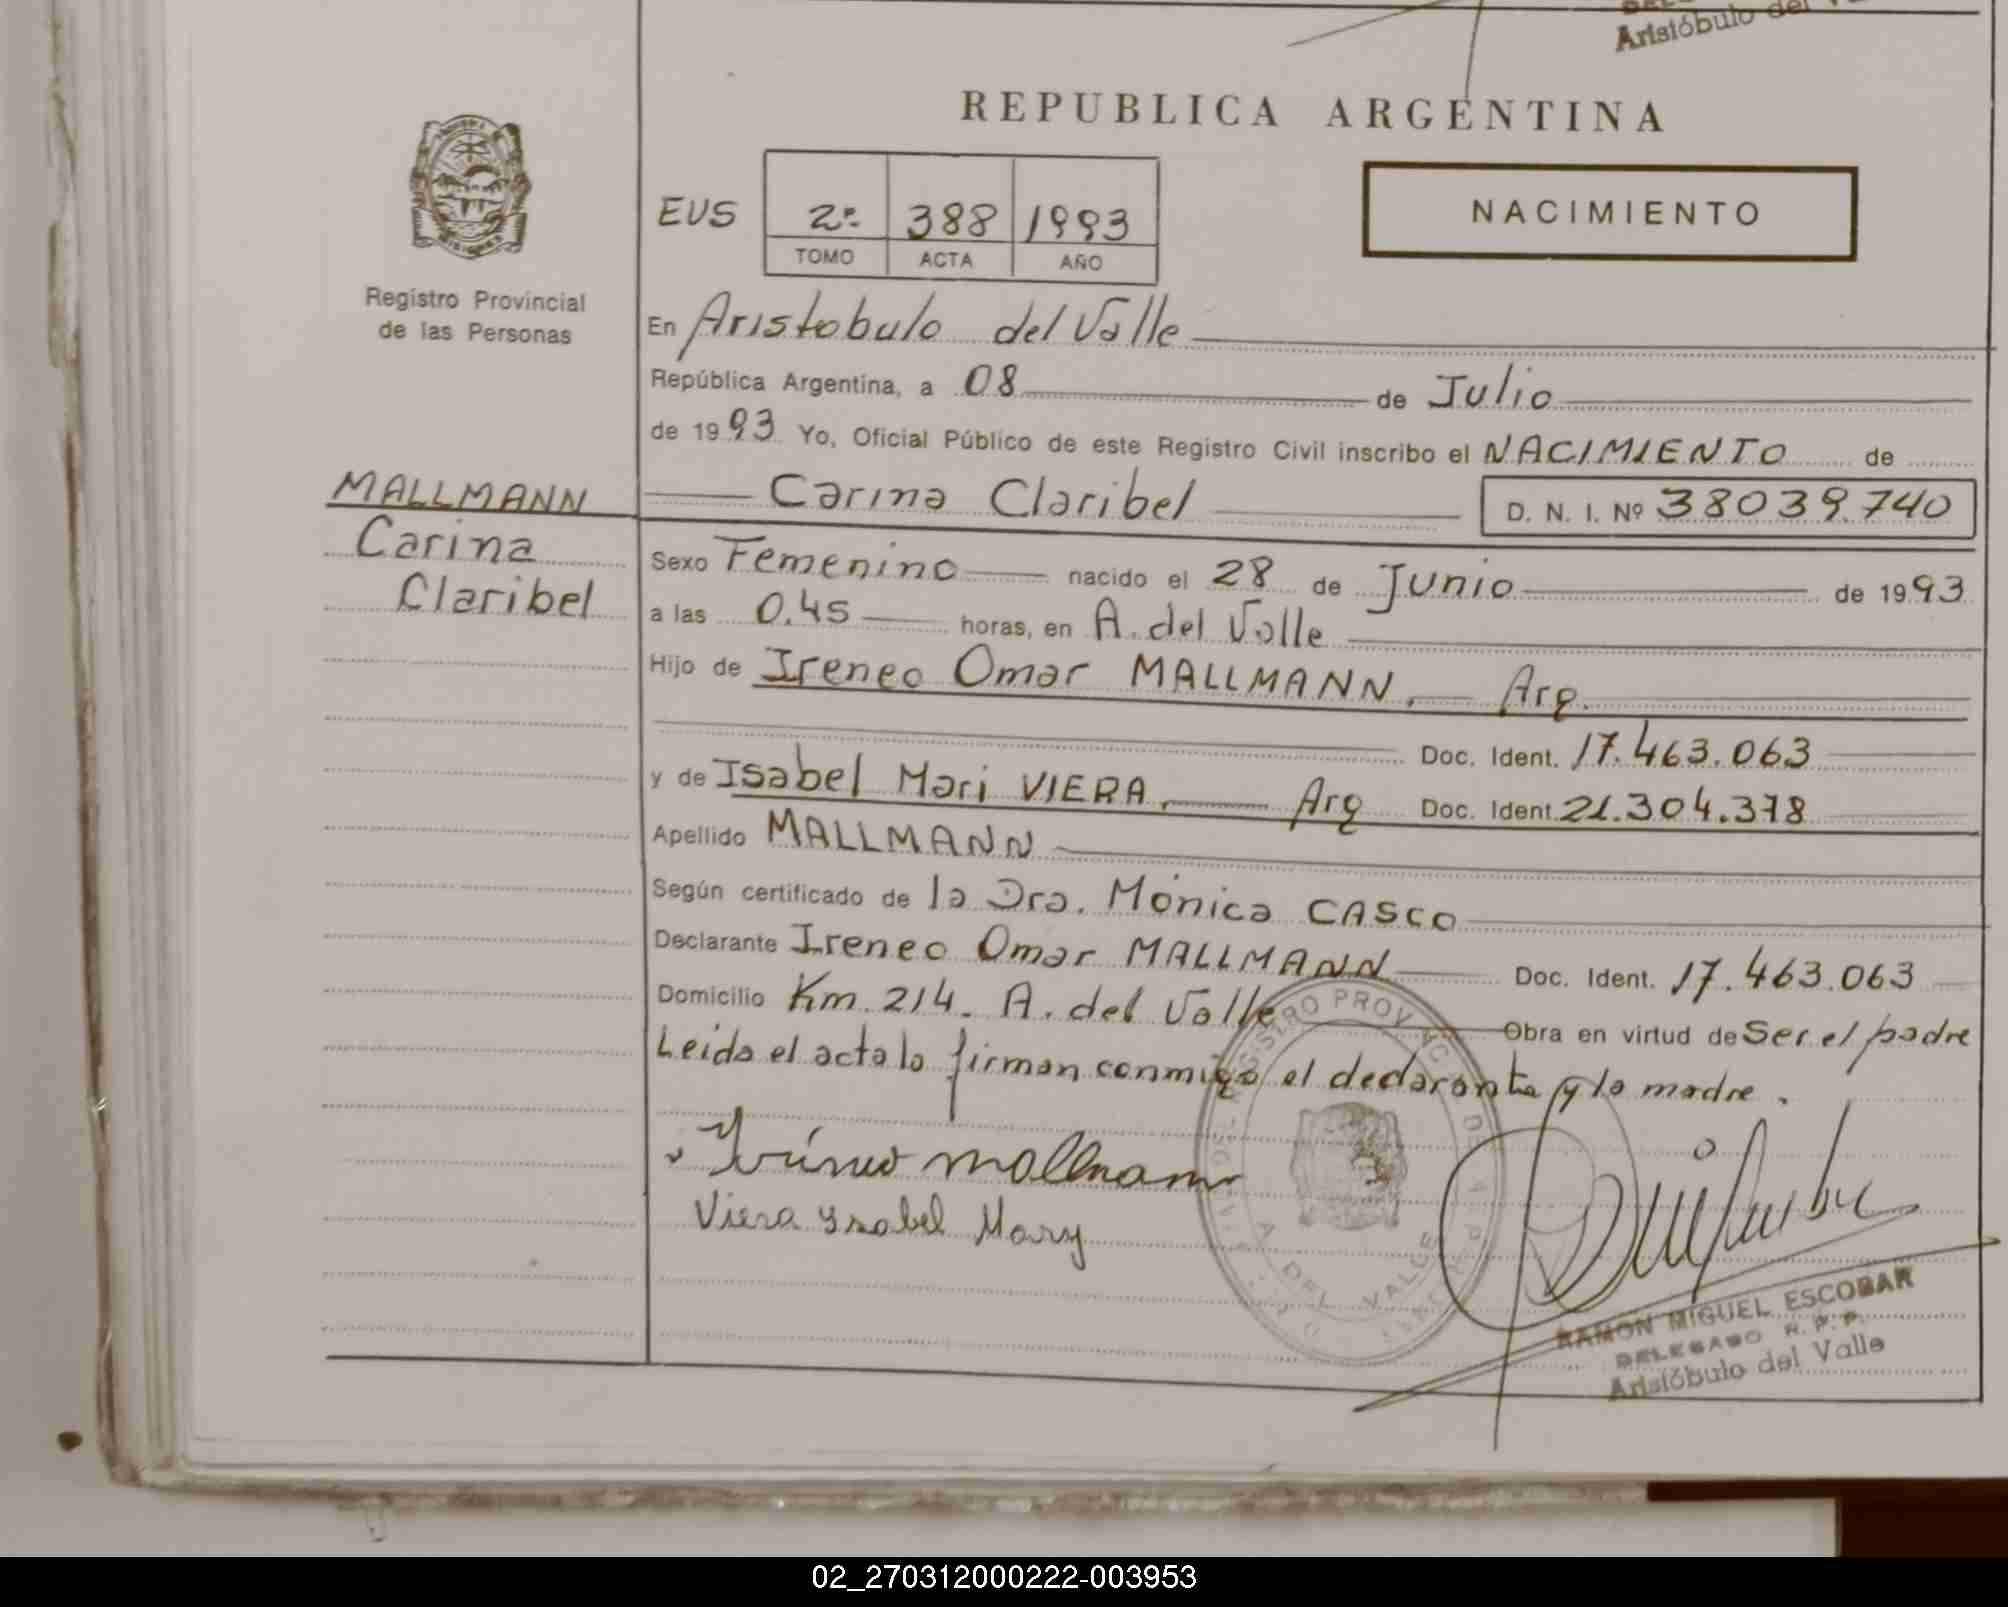 Aristóbulo del
REPUBLICA ARGENTINA
NACIMIENTO
EUS 2º 388 1993
TOMO ACTA AÑO
Registro Provincial
de las Personas
En Aristobulo del Valle
República Argentina, a 08 de Julio
de 1993 Yo, Oficial Público de este Registro Civil inscribo el NACIMIENTO de
MALLMANN
Carina
Claribel
Carina Claribel D. N. I. Nº 38039.740
Sexo Femenino nacido el 28 de Junio de 1993
a las 0.45 horas, en A. del Valle
Hijo de Ireneo Omar MALLMANN, Arg.
Doc. Ident. 17.463.063
y de Isabel Mari VIERA, Arg Doc. Ident. 21.304.378
Apellido MALLMANN
Según certificado de la Dra. Mónica CASCO
Declarante Ireneo Omar MALLMANN Doc. Ident. 17.463.063
Domicilio Km. 214. A. del Valle Obra en virtud de Ser el padre
Leida el acta la firman conmigo el declarante y la madre.
Viera Ysabel Mary
A. DEL VALLE
RAMON MIGUEL ESCOBAR
DELEGADO R. P. P.
Aristóbulo del Valle
02_270312000222-003953